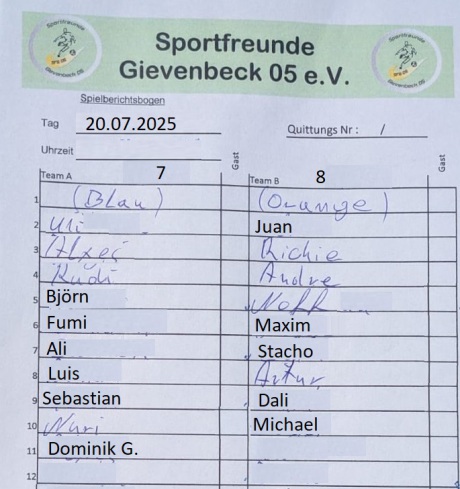 Sportfreunde
Gievenbeck 05 e.V.
Spielberichtsbogen
Tag 20.07.2025
Quittungs Nr : /
Uhrzeit
Gast
Gast
Team A 7 Team B 8
1 (Blau) (Orange)
2 Uli Juan
3 Richie
4 Rudi Andre
5 Björn
6 Fumi Maxim
7 Ali Stacho
8 Luis Artur
9 Sebastian Dali
10 Nuri Michael
11 Dominik G.
12